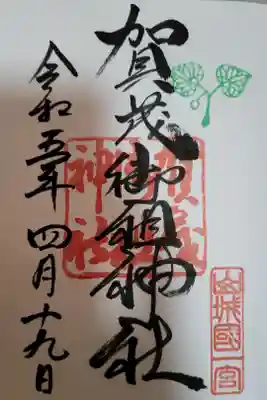 山城國一宮
賀茂御祖神社
賀茂
神社
令和五年四月十九日